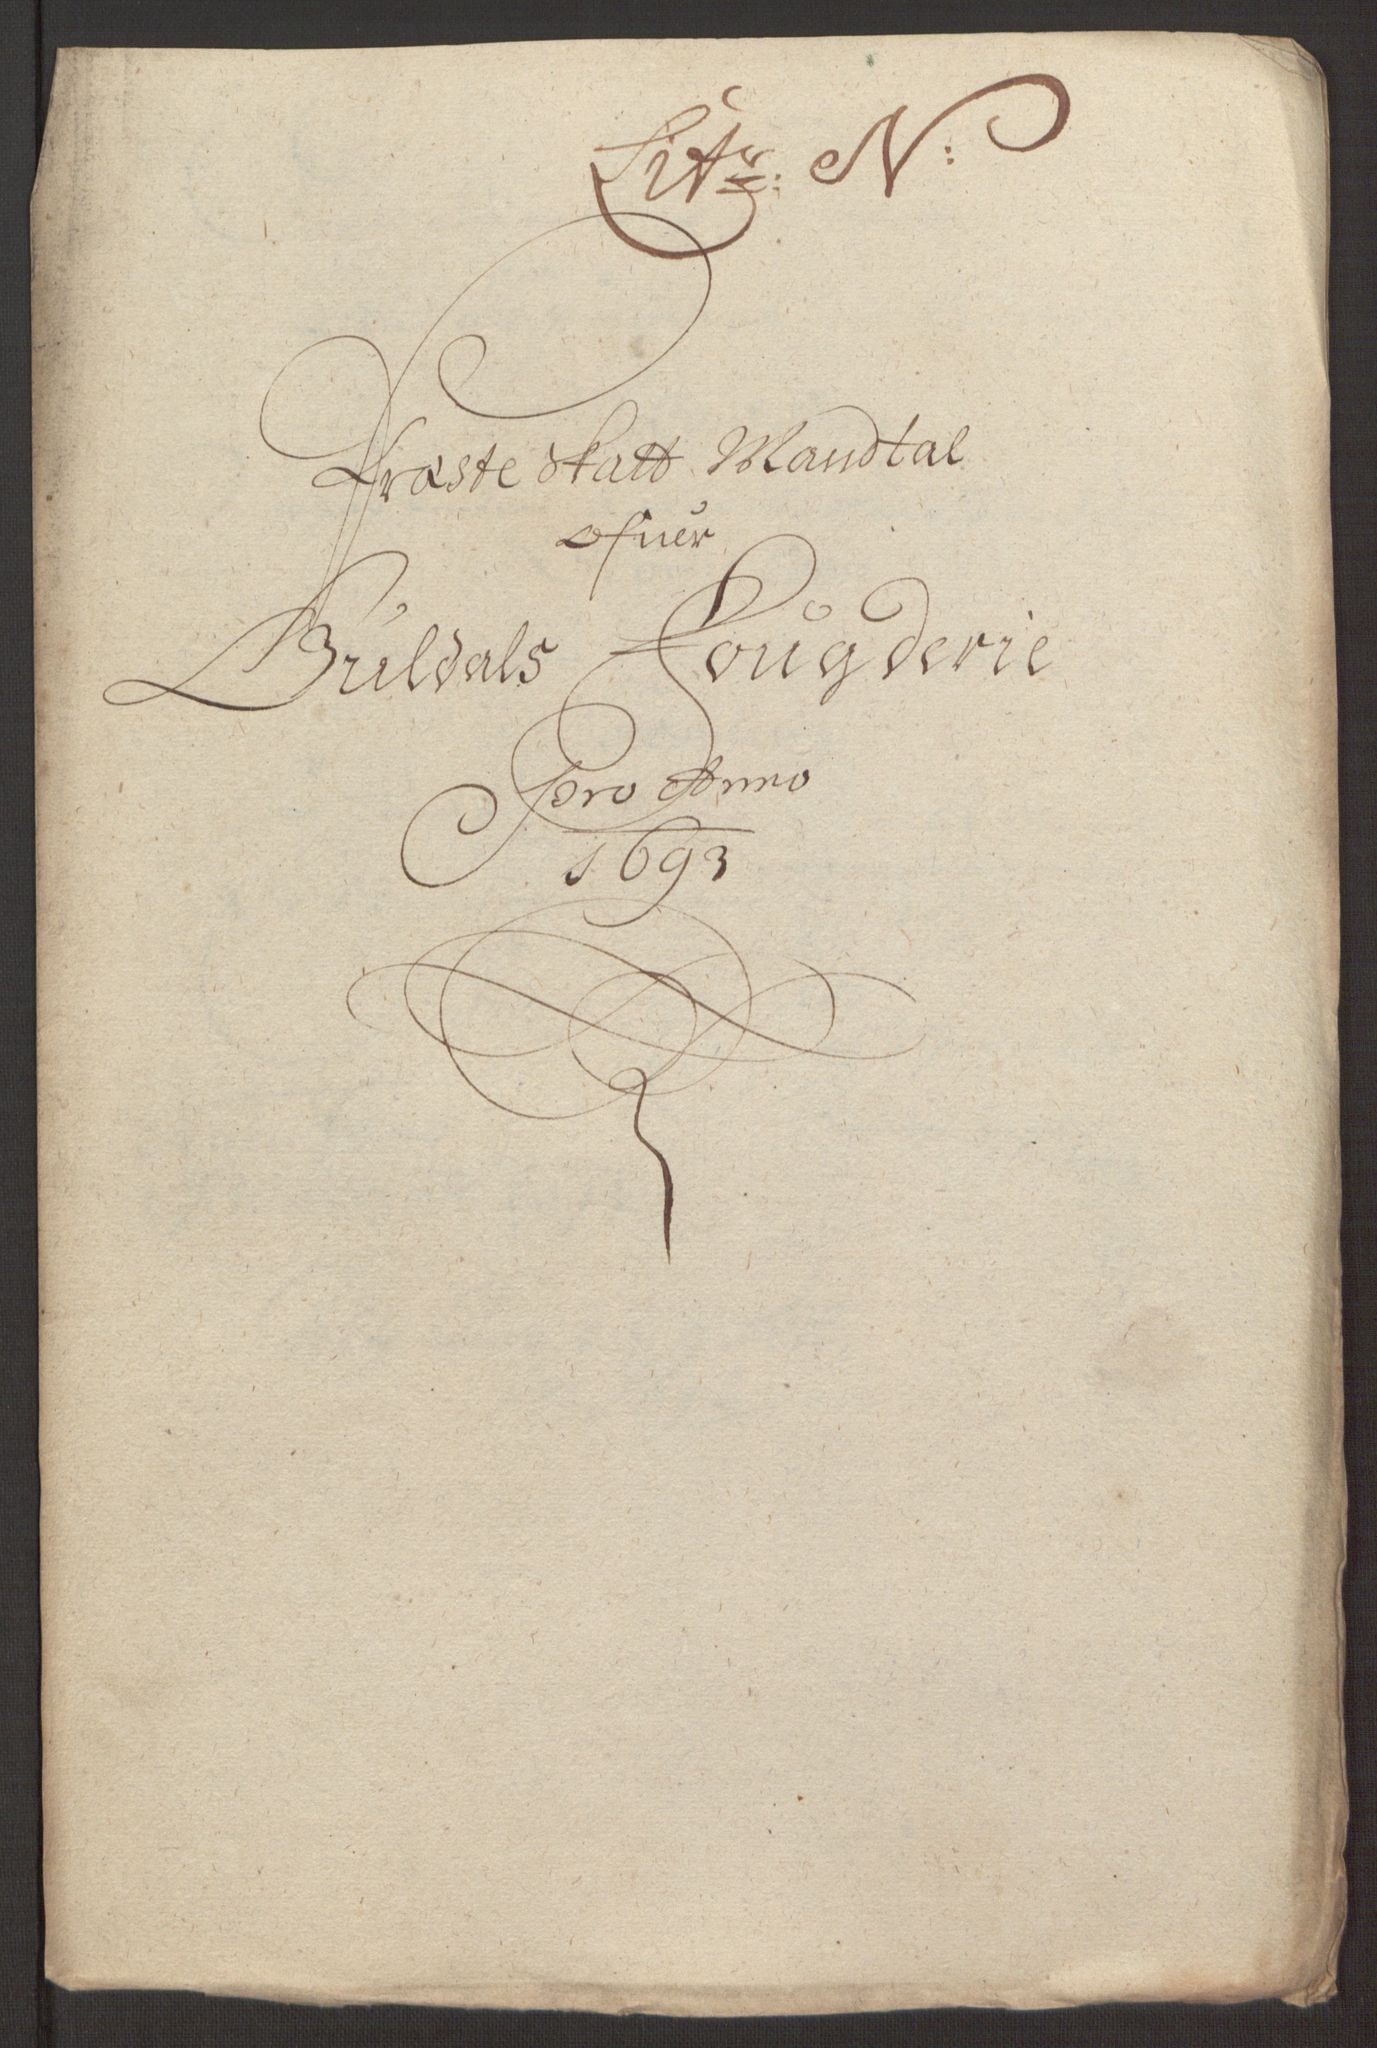 Littr: N:
Kræste Skatt Mandtal
ofuer
Buldals Fougderie
pro Anno
1693